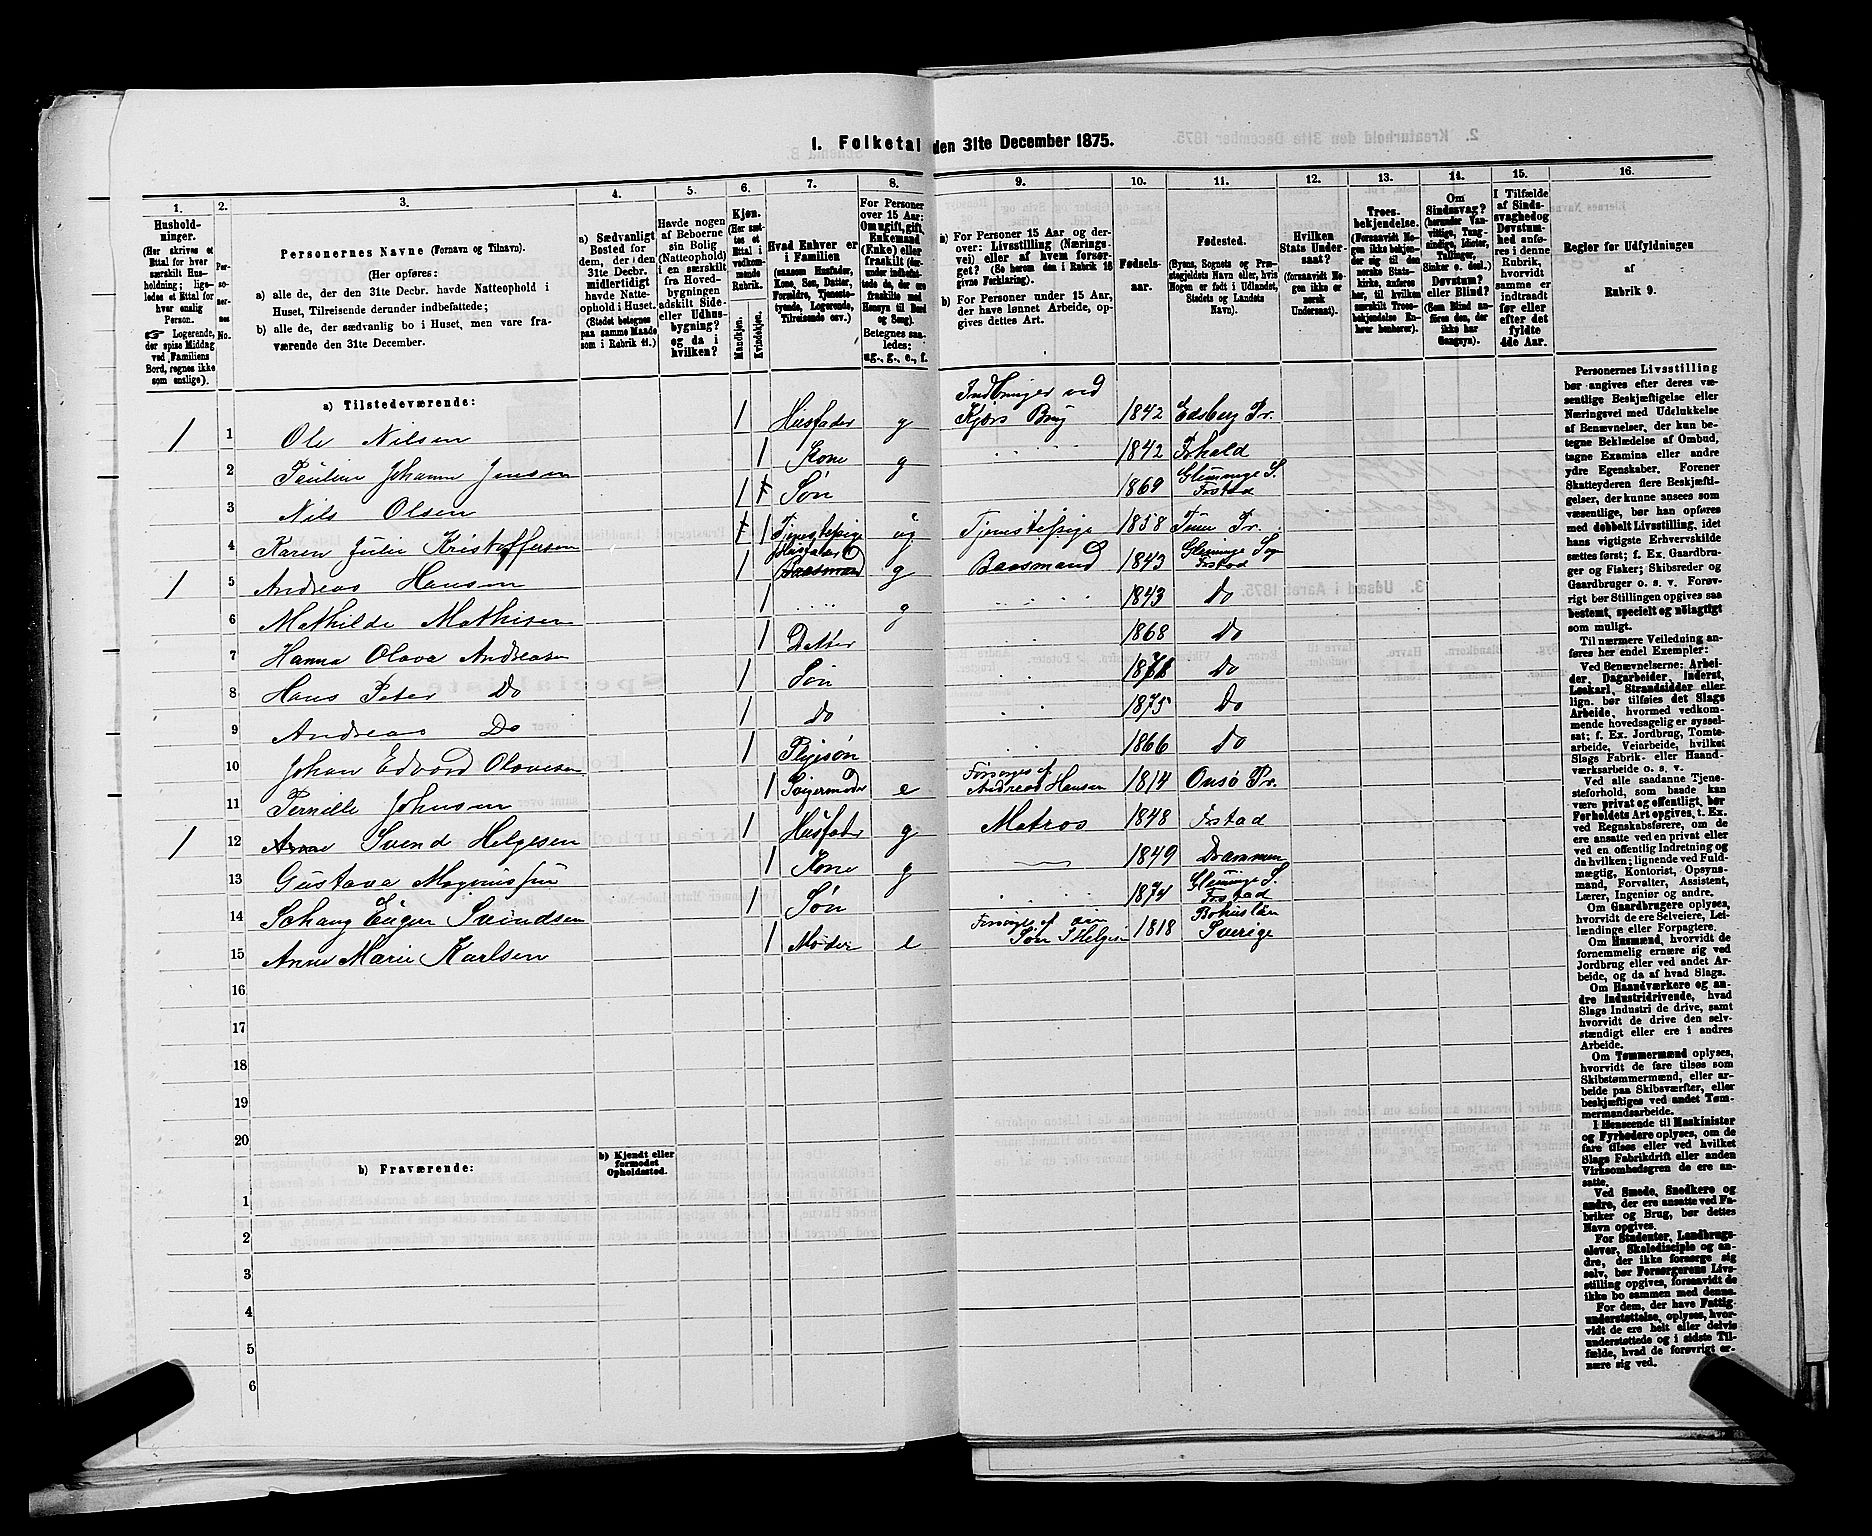 1. Folketal den 31te December 1875.
1. 2. 3. 4. 5. 6. 7. 8. 9. 10. 11. 12. 13. 14. 15. 16.
Hushold-
ninger.
(Her skrives et
Ettal for hver
særskilt Hus-
holdning; lige-
ledes et Ettal for
hver enslig
Person.
Logerende,
der spise Middag
ved Familiens
Bord, regnes ikke
som enslige).
Per-
so-
ner-
nes
No.
Personernes Navne (Fornavn og Tilnavn).
(Her opføres:
a) alle de, der den 31te Decbr. havde Natteophold i
Huset, Tilreisende derunder indbefattede;
b) alle de, der sædvanlig bo i Huset, men vare fra-
værende den 31te December.
a) Sædvanligt
Bosted for
dem, der i den
31te Decbr.
midlertidigt
havde Natte-
ophold i Huset.
(Stedet betegnes
paa samme Maade
som i Rubrik 11.)
Havde nogen
af Beboerne
sin Bolig
(Natteophold)
i en særskilt
fra Hoved-
bygningen
adskilt Side-
eller Udhus-
bygning?
og da i
hvilken?
Kjøn.
(Her sæt-
tes et
Ettal i
vedkom-
mende
Rubrik.
Mandkjøn.
Kvindekjøn.
Hvad Enhver er
i Familien
(saasom Husfader,
Kone, Søn, Datter,
Forældre, Tjeneste-
tyende, Logerende,
Tilreisende osv.)
For Personer
over 15 Aar:
Om ugift, gift,
Enkemand
(Enke) eller
fraskilt (der-
under indbefat-
tede de, der ere
fraskilte med
Hensyn til Bord
og Seng).
Betegnes saa-
ledes:
ug., g., e., f.
a) For Personer 15 Aar og der-
over: Livsstilling (Nærings-
vei) eller af hvem forsør-
get? (Se herom den i Rubrik 16
givne Forklaring).
b) For Personer under 15 Aar,
der have lønnet Arbeide, op-
gives dettes Art.
Fødsels-
aar.
Fødested.
(Byens, Sognets og Præ-
stegjeldets Navn eller, hvis
Nogen er født i Udlandet,
Stedets og Landets
Navn).
Hvilken
Stats Under-
saat?
(forsaavidt No-
gen ikke er
norsk
Undersaat).
Troes-
bekjendelse.
(Forsaavidt No-
gen ikke bekjen-
der sig til den
norske Stats-
kirke, anføres
her, til hvilken
særskilt Troes-
bekjendelse En-
hver henhører).
Om
Sindssvag?
(herunder Van-
vittige, Tung-
sindige, Idioter,
Tullinger,
Sinker o. desl.)
Døvstum?
eller Blind?
(Som Blind an-
føres den, der
ikke har
Gangsyn).
I Tilfælde
af Sinds-
svaghed og
Døvstum-
hed anfø-
res i denne
Rubrik,
hvorvidt
samme er
indtraadt
før eller
efter det
fyldte
4de Aar.
Regler for Udfyldningen
af
Rubrik 9.
a) Tilstedeværende:
1 1 Ole Nilsen 1 Husfader g Kjørs Brug 1842 Edsberg Pr.
2 Johanne Jensen 1 Kone g 1842 Frhald
3 Nils Olsen 1 Søn 1869 Glemminge S. Frstad
4 Karen Julie Kristoffersen 1 Tjenestepige ug Tjenestepige 1858 Tune Pr.
1 5 Andreas Hansen 1 Husfader Baasmand g Baasmand 1843 Glemminge Sogn Frstad
6 Mathilde Mathisen 1 g 1843 Do
7 Hanna Olava Andreasen 1 Datter 1868 Do
8 Hans Peter Do 1 Søn 1871 Do
9 Andreas Do 1 Do 1875 Do
10 Johan Edvard Olavesen 1 Plejesøn 1866 Do
11 Pernille Johnsen 1 Svigermoder e Forsørges af Andreas Hansen 1814 Onsø Pr.
1 12 Svend Helgesen 1 Husfader g Matros 1848 Frstad
13 Gustava Magnussen 1 Kone g 1849 Drammen
14 Johang Eugen Svendsen 1 Søn 1874 Glemminge S. Frstad
15 Anne Marie Karlsen 1 Moder e Forsørges af Søn S Helgesen 1818 Bohuslän Sverige
16
17
18
19
20
b) Fraværende:
b) Kjendt eller
formodet
Opholdssted.
1
2
3
4
5
6
Personernes Livsstilling
bør angives efter deres væ-
sentlige Beskjæftigelse eller
Næringsvei med Udelukkelse
af Benævnelser, der kun be-
tegne Beklædelse af Ombud,
tagne Examina eller andre
ydre Egenskaber. Forener
Skatteyderen flere Beskjæfti-
gelser, der kunne ansees som
væsentlige, bør han opføres
med dobbelt Livsstilling, idet
hans vigtigste Erhvervskilde
sættes først; f. Ex. Gaardbru-
ger og Fisker; Skibsreder og
Gaardbruger o. s. v. Forøv-
rigt bør Stillingen opgives saa
bestemt, specielt og nøiagtigt
som muligt.
Til nærmere Veiledning an-
føres her endel Exempler:
Ved Benævnelserne: Arbei-
der, Dagarbeider, Inderst,
Løskarl, Strandsidder eller
lign. bør tilføies det Slags
Arbeide, hvormed vedkom-
mende hovedsagelig er syssel-
sat; f. Ex. Jordbrug, Tomte-
arbeide, Veiarbeide, hvilket
Slags Fabrik- eller Haand-
værksarbeide o. s. v.
Ved alle saadanne Tjene-
steforhold, som baade kan
være privat og offentligt, bør
Forholdets Art opgives, t. Ex.
ved Regnskabsførere, om de
ere ansatte ved en privat eller
ved en offentlig Indretning og
da hvilken; lignende ved Fuld-
mægtig, Kontorist, Opsyns-
mand, Forvalter, Assistent,
Lærer, Ingeniør og andre.
Om Gaardbrugere oplyses,
hvorvidt de ere Selveiere, Lei-
lændinge eller Forpagtere.
Om Husmænd, hvorvidt de
fornemmelig ernære sig ved
Jordbrug eller ved andet Ar-
beide, og da af hvad Slags.
Om Haandværkere og an-
dre Industridrivende, hvad
Slags Industri de drive, samt
hvorvidt de drive den selv-
stændigt eller ere i andres
Arbeide.
Om Tømmermænd oplyses,
hvorvidt de fare tilsøs som
Skibstømmermænd, eller ar-
beide paa Skibsværfter, eller
beskjæftiges ved andet Tøm-
mermandsarbeide.
I Henseende til Maskinister
og Fyrbødere oplyses, om de
fare tilsøs eller ved hvilket
Slags Fabrikdrift eller anden
Virksomhedsgren de ere an-
satte.
Ved Smede, Snedkere og
andre, der ere ansatte ved Fa-
briker og Brug, bør dettes
Navn opgives.
For Studenter, Landbrugs-
elever, Skoledisciple og an-
dre, der ikke forsørge sig
selv, bør Forsørgerens Livs-
stilling opgives, forsaavidt de
ikke bo sammen med denne.
For dem, der have Fattig-
understøttelse, oplyses, hvor-
vidt de ere helt eller delvis
understøttede og i sidste Til-
fælde, hvad de forøvrigt er-
nære sig ved.